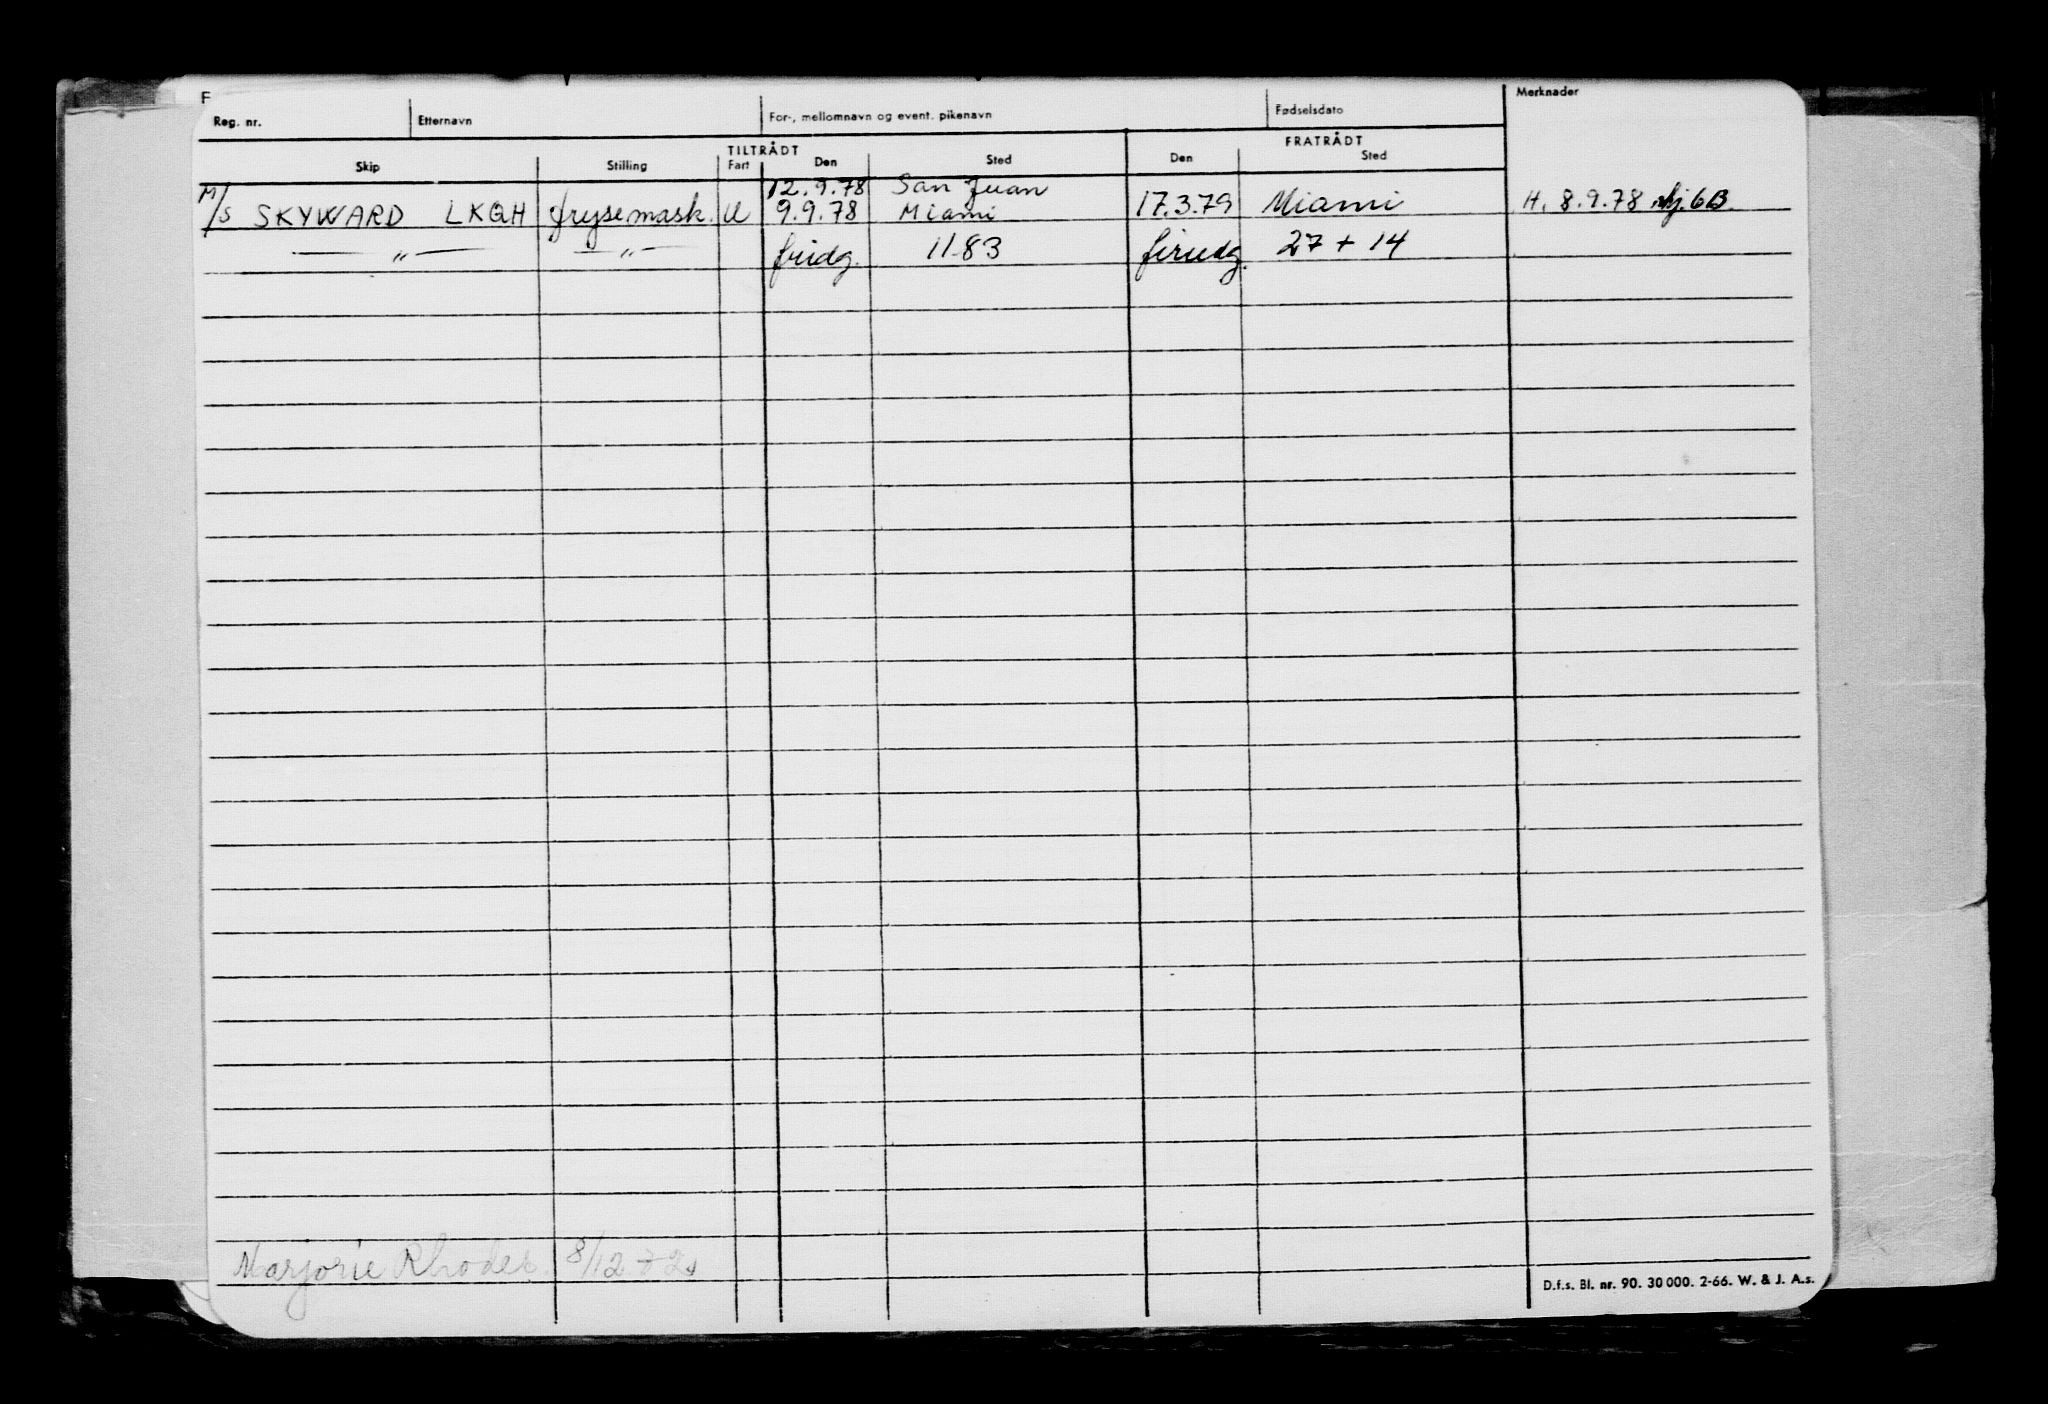 F
Reg. nr. Etternavn For-, mellomnavn og event. pikenavn Fødselsdato Merknader
TILTRÅDT FRATRÅDT
Skip Stilling Fart Den Sted Den Sted
12.9.78 San Juan
M/S SKYWARD LKQH frysemask. U 9.9.78 Miami 17.3.79 Miami H. 8.9.78 6B.
— " — — " — fridg. 1183 feriedg. 27 + 14
Marjorie Rhodes 8/12
D.f.s. Bl. nr. 90. 30 000. 2-66. W. & J. A.s.